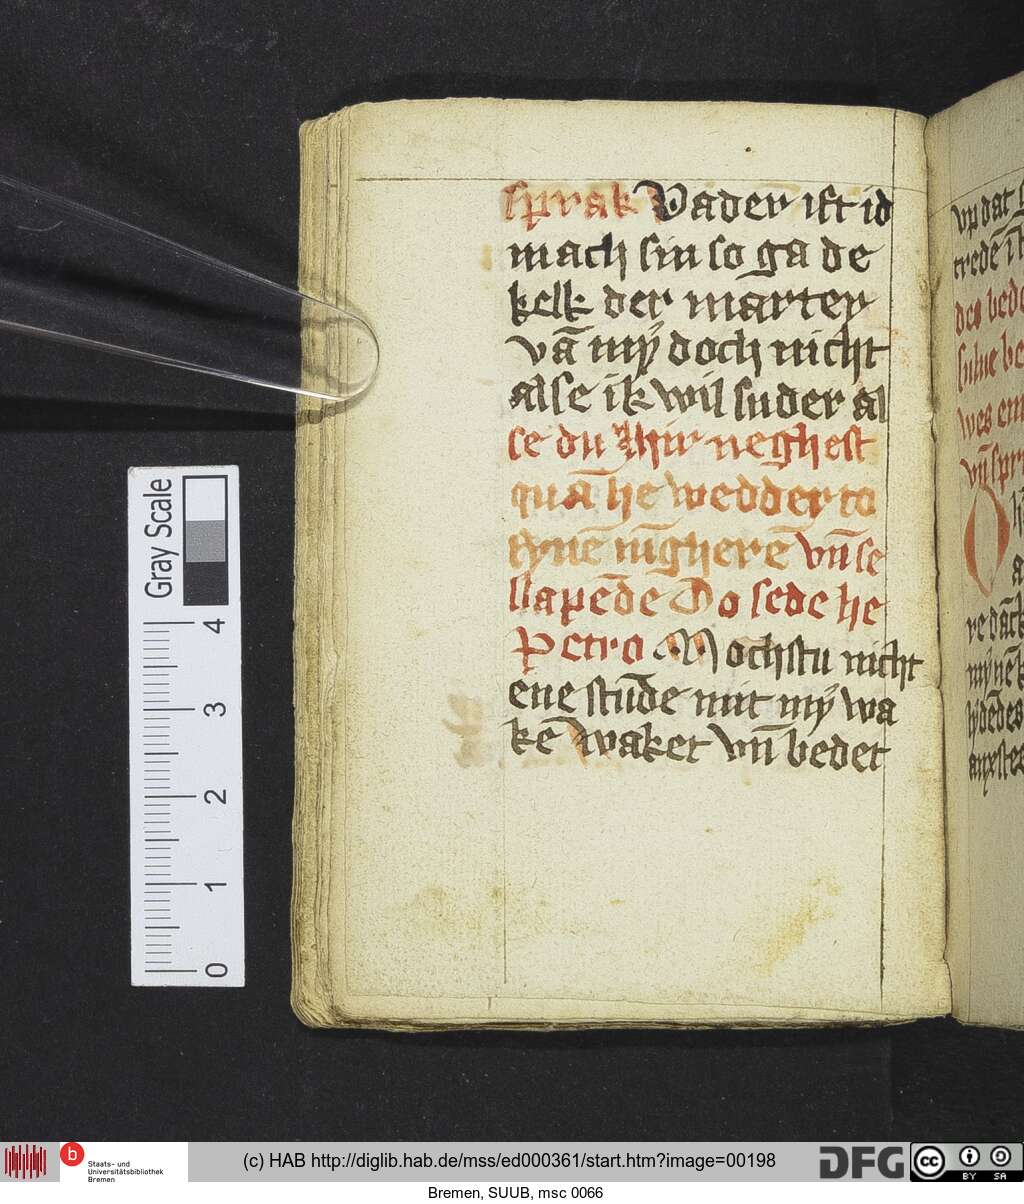 sprak Vader ist id
mach sin so ga de
kelk der marter
vā mỳ doch nicht
alse ik wil suder al
se du Hir neghest
quā he wedder to
synē iūgherē vn̄ se
slapēde Do sede he
Petro Mochstu nicht
ene stūde mit mỳ wa
kē waket vn̄ bedet
vp dat
tredē
des bede
sulue be
wes em
O
mỳnē
Gray Scale
4
3
2
1
0
b
Staats- und
Universitätsbibliothek
Bremen
(c) HAB http://diglib.hab.de/mss/ed000361/start.htm?image=00198
DFG
cc
BY SA
Bremen, SUUB, msc 0066